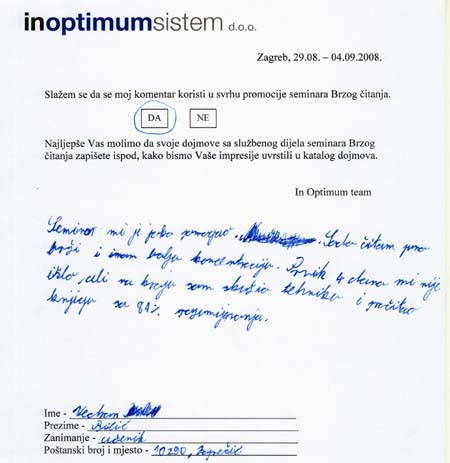 inoptimumsistem d.o.o.
Zagreb, 29.08. – 04.09.2008.
Slažem se da se moj komentar koristi u svrhu promocije seminara Brzog čitanja.
DA NE
Najljepše Vas molimo da svoje dojmove sa službenog dijela seminara Brzog
čitanja zapišete ispod, kako bismo Vaše impresije uvrstili u katalog dojmova.
In Optimum team
Seminar mi je jako pomogao. Sada čitam puno
brži i imam bolju koncentraciju. Prvih 4 dana mi nije
išlo, ali na kraju sam skužio tehniku i pročitao
knjigu sa 81% razumijevanja.
Ime - Vedran
Prezime - Bilić
Zanimanje - učenik
Poštanski broj i mjesto - 10290, Zaprešić